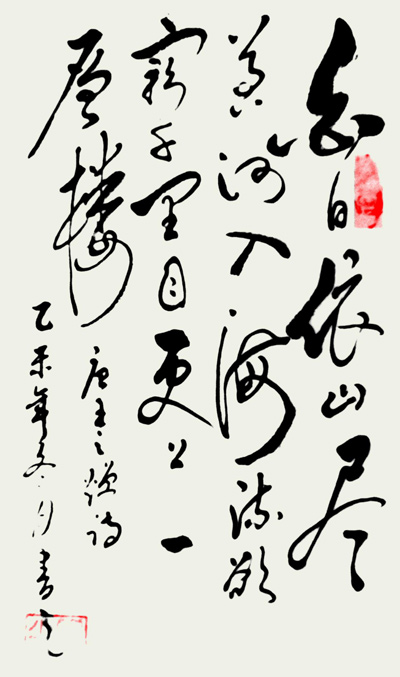 白日依山尽
黄河入海流欲
窮千里目更上一
層樓
唐王之涣诗
乙未年冬月書